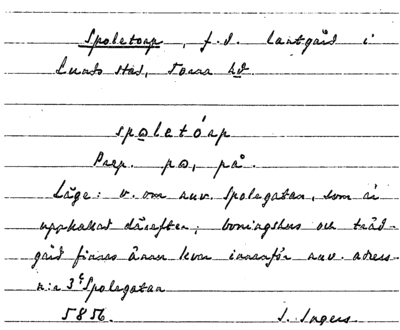 Spoletorp, f.d. lantgård i
Lunds stad, Torna hd.
spo̲letórp
Prep. po, på.
Läge: v. om nuv. Spolegatan, som är
uppkallad därefter; boningshus och träd-
gård finnas ännu kvar innanför nuv. adress
n:r 3 Spolegatan
5856. S. Ingers